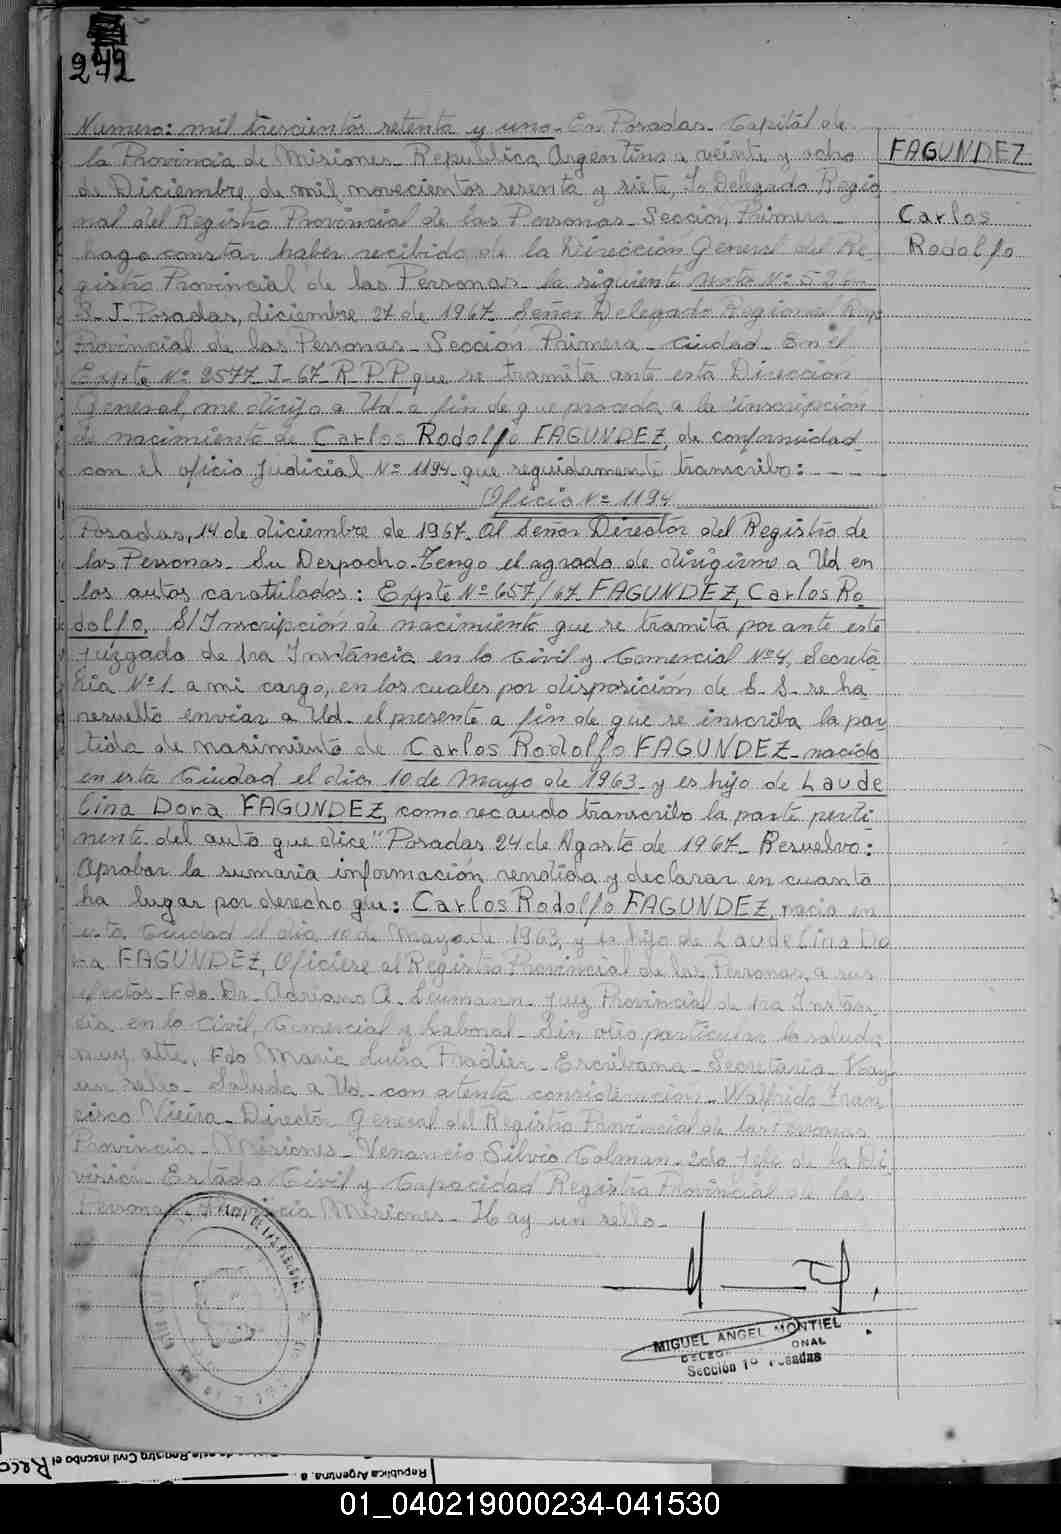 242
Numero: mil trescientos setenta y uno. En Posadas. Capital de
la Provincia de Misiones. Republica Argentina a veinte y ocho
de Diciembre de mil novecientos sesenta y siete, Yo Delegado Regio
nal del Registro Provincial de las Personas. Sección Primera
hago constar haber recibido de la Dirección General del Re
gistro Provincial de las Personas. la siguiente nota Nº 526
S. J. Posadas, diciembre 27 de 1967. Señor Delegado Regional Reg.
Provincial de las Personas. Sección Primera. Ciudad. En el
Expte Nº 2577. I-67. R.P.P. que se tramita ante esta Dirección
General, me dirijo a Ud. a fin de que proceda a la inscripción
de nacimiento de Carlos Rodolfo FAGUNDEZ, de conformidad
con el oficio Judicial Nº 1194. que seguidamente transcribo: - - -
Oficio Nº 1194
Posadas, 14 de diciembre de 1967. Al Señor Director del Registro de
las Personas. Su Despacho. Tengo el agrado de dirigirme a Ud en
los autos caratulados: Expte Nº 657/67. FAGUNDEZ, Carlos Ro
dolfo, S/Inscripción de nacimiento que se tramita por ante este
juzgado de 1ra Instancia en lo Civil y Comercial Nº 4, Secreta
ria Nº 1. a mi cargo, en los cuales por disposición de S. S. se ha
resuelto enviar a Ud. el presente a fin de que se inscriba la par
tida de nacimiento de Carlos Rodolfo FAGUNDEZ. nacido
en esta Ciudad el dia 10 de Mayo de 1963. y es hijo de Laude
lina Dora FAGUNDEZ, como recaudo transcribo la parte perti
nente del auto que dice "Posadas 24 de Agosto de 1967. Resuelvo:
Aprobar la sumaria información rendida y declarar en cuanto
ha lugar por derecho que: Carlos Rodolfo FAGUNDEZ, nacio en
esta Ciudad el dia 10 de Mayo de 1963, y es hijo de Laudelina Do
ra FAGUNDEZ, Oficiese al Registro Provincial de las Personas, a sus
efectos. Fdo. Dr. Adriano A. Leumann. Juez Provincial de 1ra Instan
cia en lo Civil, Comercial y Laboral. Sin otro particular lo saluda
muy atte. Fdo Maria Luisa Escribana. Secretaria. Hay
un sello. Saluda a Ud. con atenta consideracion. Walfrido Fran
cisco Vieira. Director General del Registro Provincial de las Personas
Provincia. Misiones. Venancio Silvio Colman. 2do Jefe de la Di
visión Estado Civil y Capacidad Registro Provincial de las
Personas. Provincia Misiones. Hay un sello.
FAGUNDEZ
Carlos
Rodolfo
MIGUEL ANGEL MONTIEL
Sección 1º Posadas
Republica Argentina, a
01_040219000234-041530